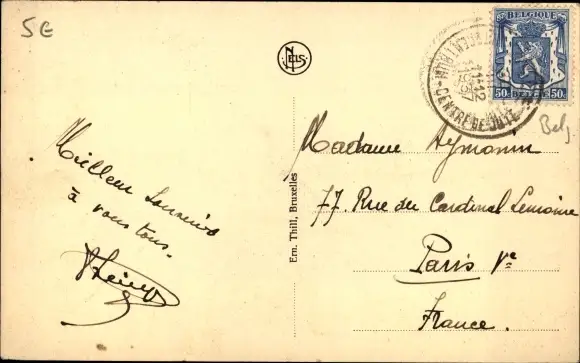 5€
NELS
BELGIQUE
50c 50c
BELGIË
11-12
1937
CENTRE DE
Bely
Meilleur Souvenir
à vous tous.
Ern. Thill, Bruxelles
Madame Aymonin
77. Rue du Cardinal Lemoine
Paris Ve
France.